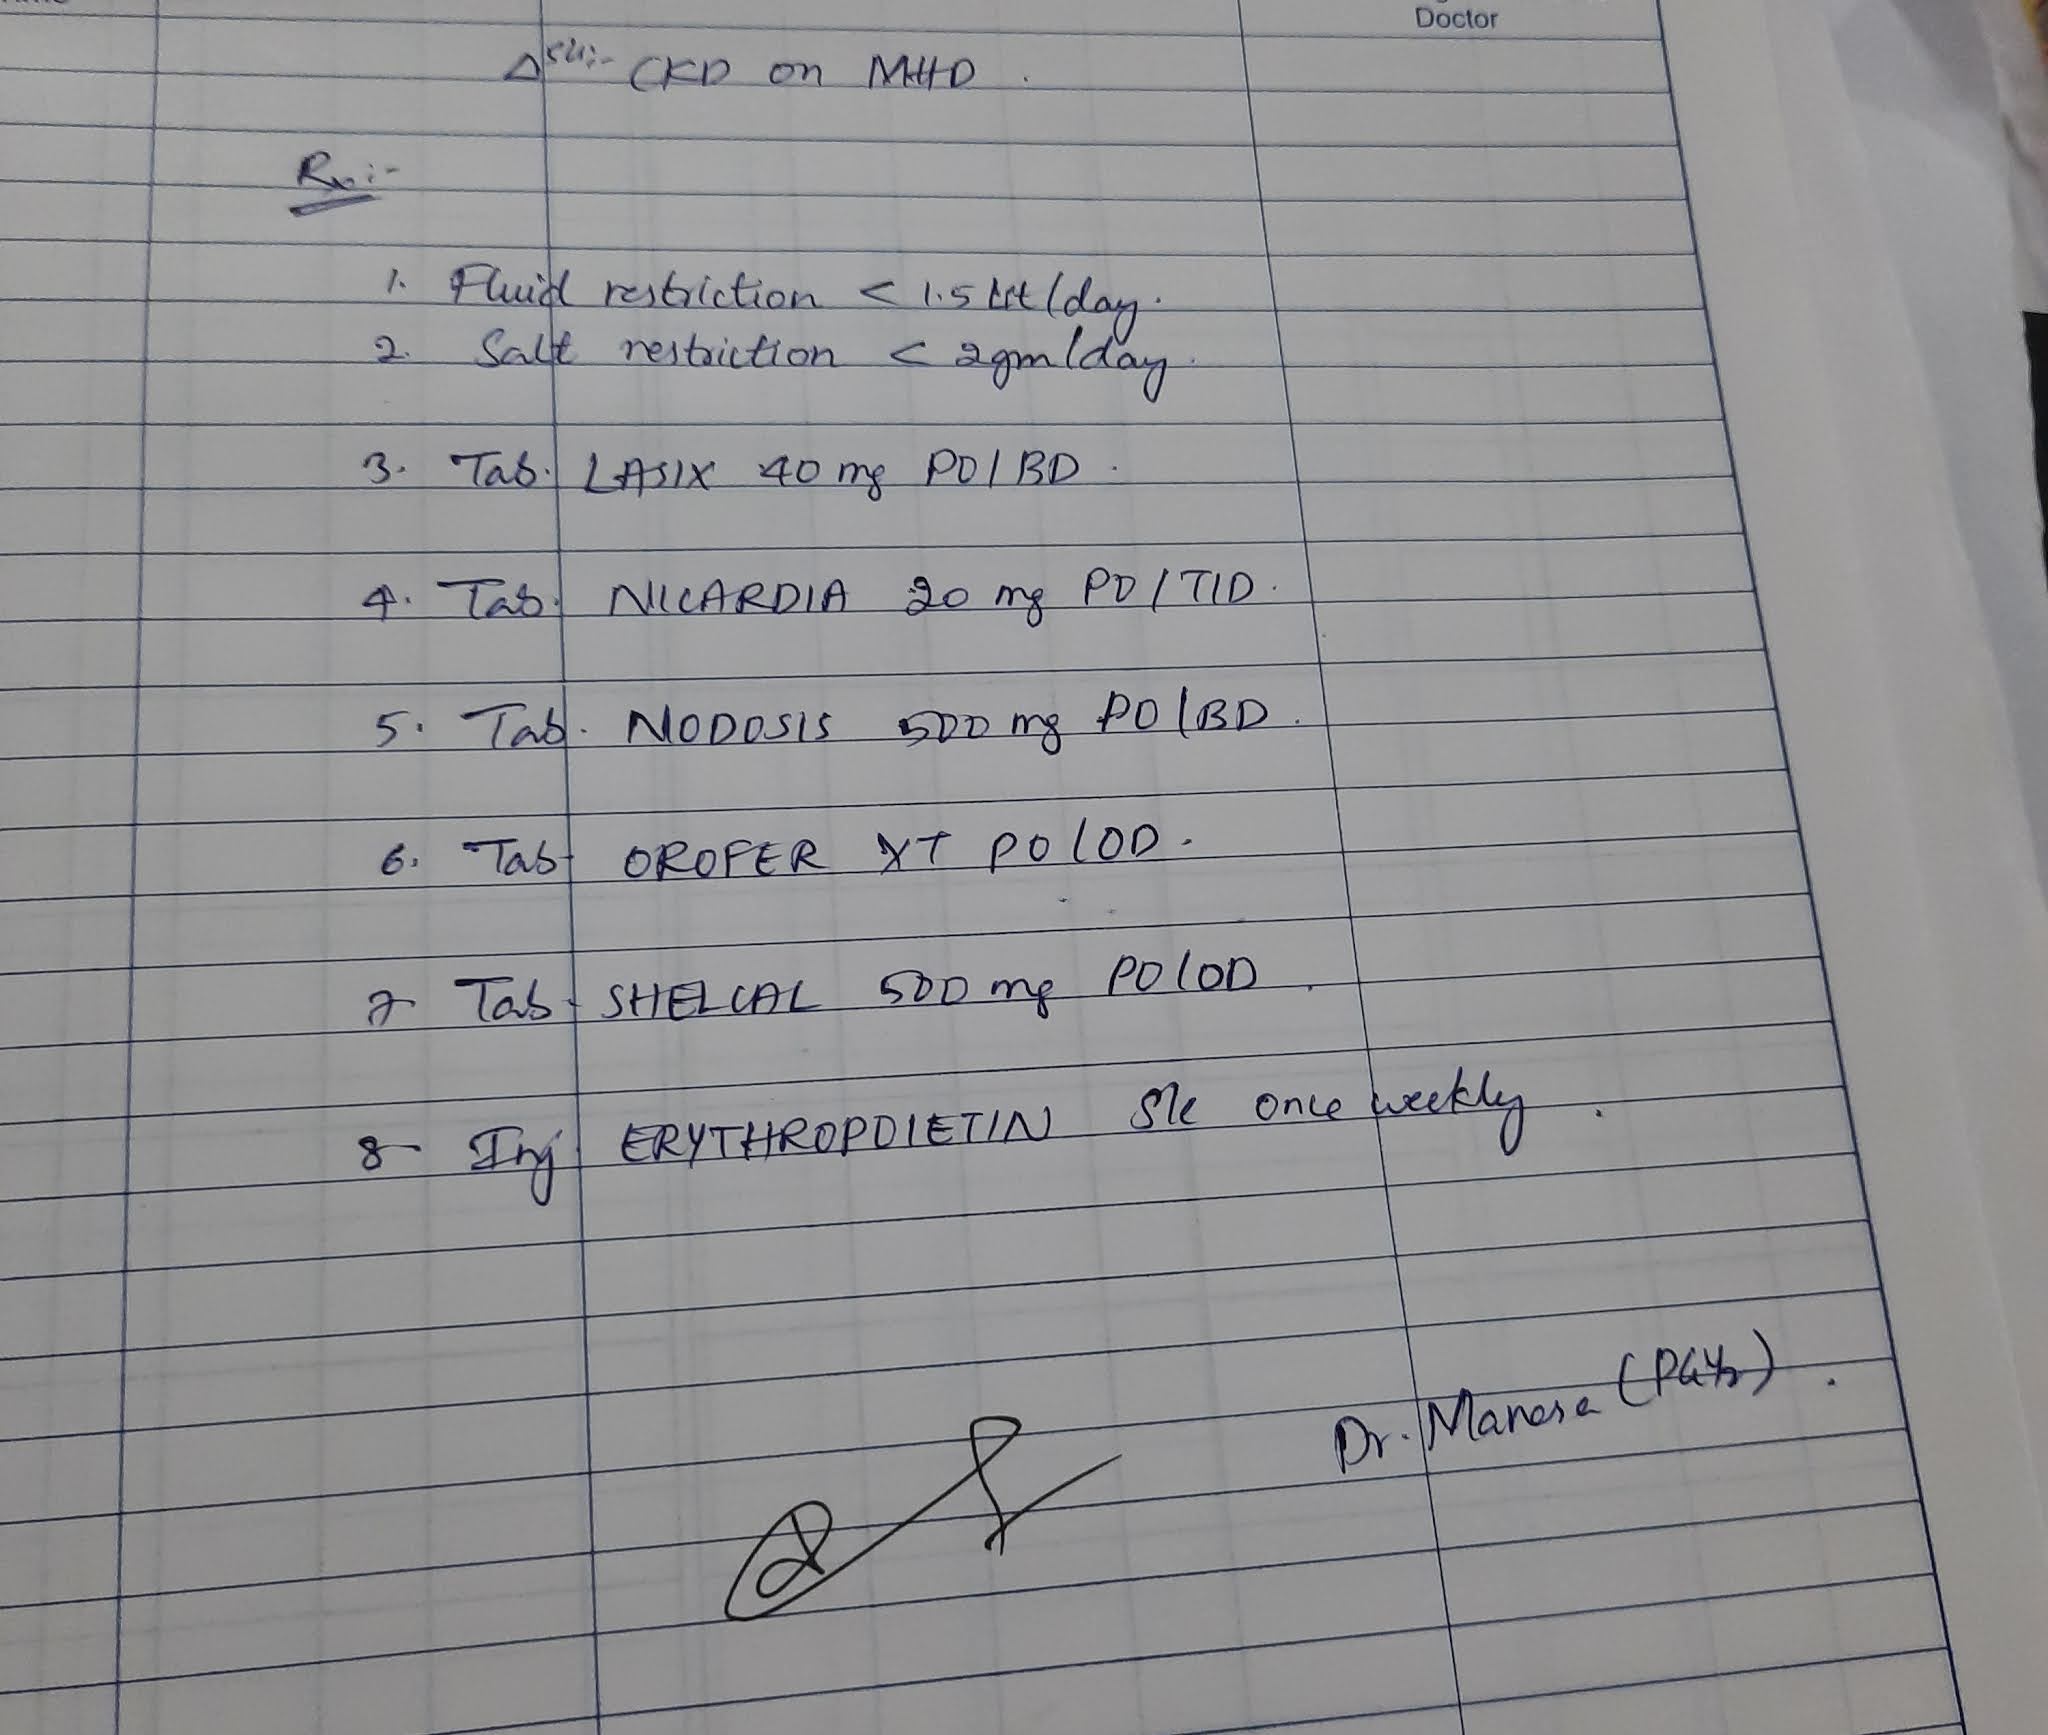 Doctor
Δsis:- CKD on MHD.
Rx:-
1. Fluid restriction < 1.5 lit/day.
2. Salt restriction < 2gm/day.
3. Tab. LASIX 40 mg PO/BD.
4. Tab. NICARDIA 20 mg PO/TID.
5. Tab. NODOSIS 500 mg PO/BD.
6. Tab OROFER XT PO/OD.
7. Tab SHELCAL 500 mg PO/OD.
8- Inj ERYTHROPOIETIN S/c once weekly.
Dr. Manasa (PGY2).